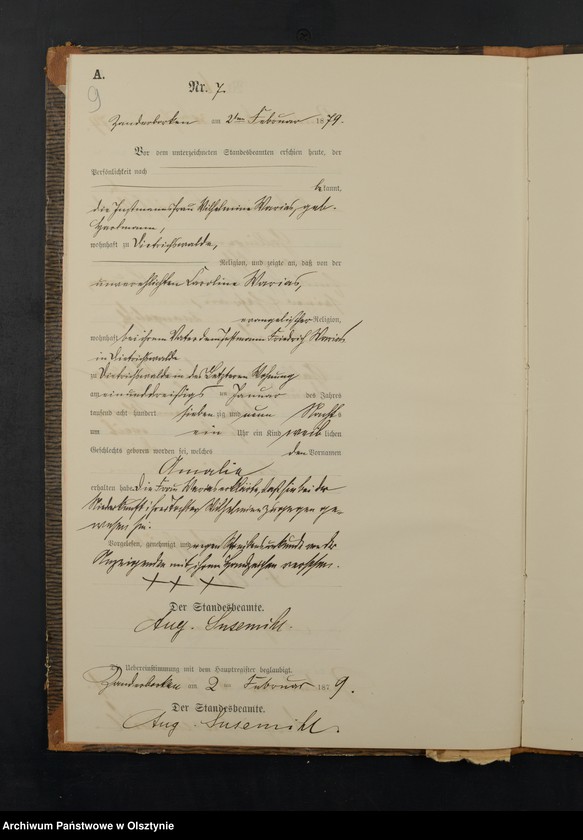 A.
9
Nr. 7.
Zanderborken am 2ten Februar 1879.
Vor dem unterzeichneten Standesbeamten erschien heute, der
Persönlichkeit nach
bekannt,
die Instmannsfrau Wilhelmine Warias, geb.
wohnhaft zu Dietrichswalde,
Religion, und zeigte an, daß von der
unverehlichten Caroline Warias,
evangelischer Religion,
wohnhaft bei ihrem Vater dem Instmann Friedrich Warias
in Dietrichswalde
zu Dietrichswalde in des Letzteren Wohnung
am einunddreißigs ten Januar des Jahres
tausend acht hundert sieben zig und neun Nachts
um ein Uhr ein Kind weib lichen
Geschlechts geboren worden sei, welches den Vornamen
Amalie
erhalten habe. Die Frau Warias erklärte, daß sie bei der
Niederkunft ihrer Tochter zugegen ge-
wesen sei.
Vorgelesen, genehmigt und wegen Schreibensunkunde von der
Anzeigende mit ihrem Handzeichen versehen.
+ + +
Der Standesbeamte.
Aug. Susemihl.
Die Uebereinstimmung mit dem Hauptregister beglaubigt.
Zanderborken am 2 ten Februar 1879.
Der Standesbeamte.
Aug Susemihl.
Archiwum Państwowe w Olsztynie